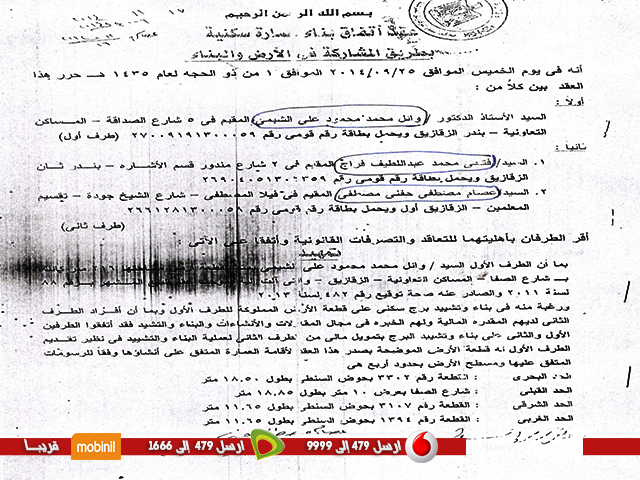 بسم الله الرحمن الرحيم
عقد اتفاق بناء عمارة سكنية
بطريق المشاركة فى الأرض والبناء
أنه فى يوم الخميس الموافق ٢٠١٤/٠٩/٢٥ الموافق ١ من ذو الحجه لعام ١٤٣٥ هـ حرر هذا
العقد بين كلا من :
أولا :
السيد الأستاذ الدكتور / وائل محمد محمود على الشيمى المقيم فى ٥ شارع الصداقة – المساكن
التعاونية – بندر الزقازيق ويحمل بطاقة رقم قومى رقم ٢٧٠٠٩١٩١٣٠٠٠٥٩ (طرف أول)
ثانيا :
١. السيد/ فتحى محمد عبداللطيف فراج المقيم فى ٢ شارع مندور قسم الأشاره – بندر ثان
الزقازيق ويحمل بطاقة رقم قومى رقم ٢٦٩٠٤٠٥١٣٠٢٣٥٩
٢. السيد/ عصام مصطفى حفنى مصطفى المقيم فى فيلا المصطفى – شارع الشيخ جودة – تقسيم
المعلمين – الزقازيق أول ويحمل بطاقة رقم قومى رقم ٢٦٦١٢٨١٣٠٠٠٥٨ (طرف ثانى)
أقر الطرفان بأهليتهما للتعاقد والتصرفات القانونية وأتفقا على الآتى :
تمهيد
بما أن الطرف الأول السيد / وائل محمد محمود على الشيمى
بـ شارع الصفا – المساكن التعاونية – الزقازيق – رقم ٨٨
لسنة ٢٠١١ والصادر عنه صحة توقيع رقم ٤٨٢ لسنة ٢٠١٣
ورغبة منه فى بناء وتشييد برج سكنى على قطعة الأرض المملوكة للطرف الأول وبما أن أفراد الطرف
الثانى لديهم المقدره المالية ولهم الخبره فى مجال المقاولات والأنشاءات والبناء والتشيد فقد أتفقوا الطرفين
الأول والثانى على بناء وتشييد البرج بتمويل مالى من الطرف الثانى لعملية البناء والتشييد فى نظير تقديم
الطرف الأول له قطعة الأرض الموضحة بصدر هذا العقد لأقامة العمارة المتفق على أنشاؤها وفقاً للرسومات
المتفق عليها ومسطح الأرض بحدود أربع هى
الحد البحرى : القطعة رقم ٣٣٠٢ بحوض السنطى بطول ١٨.٥٠ متر
الحد القبلى : شارع الصفا بعرض ١٠ متر بطول ١٨.٨٥ متر
الحد الشرقى : القطعة رقم ٣١٠٧ بحوض السنطى بطول ١١.٦٥ متر
الحد الغربى : القطعة رقم ١٣٩٤ بحوض السنطى بطول ١١.٦٥ متر
ارسل 479 إلى 9999
ارسل 479 إلى 1666
mobinil قريبا